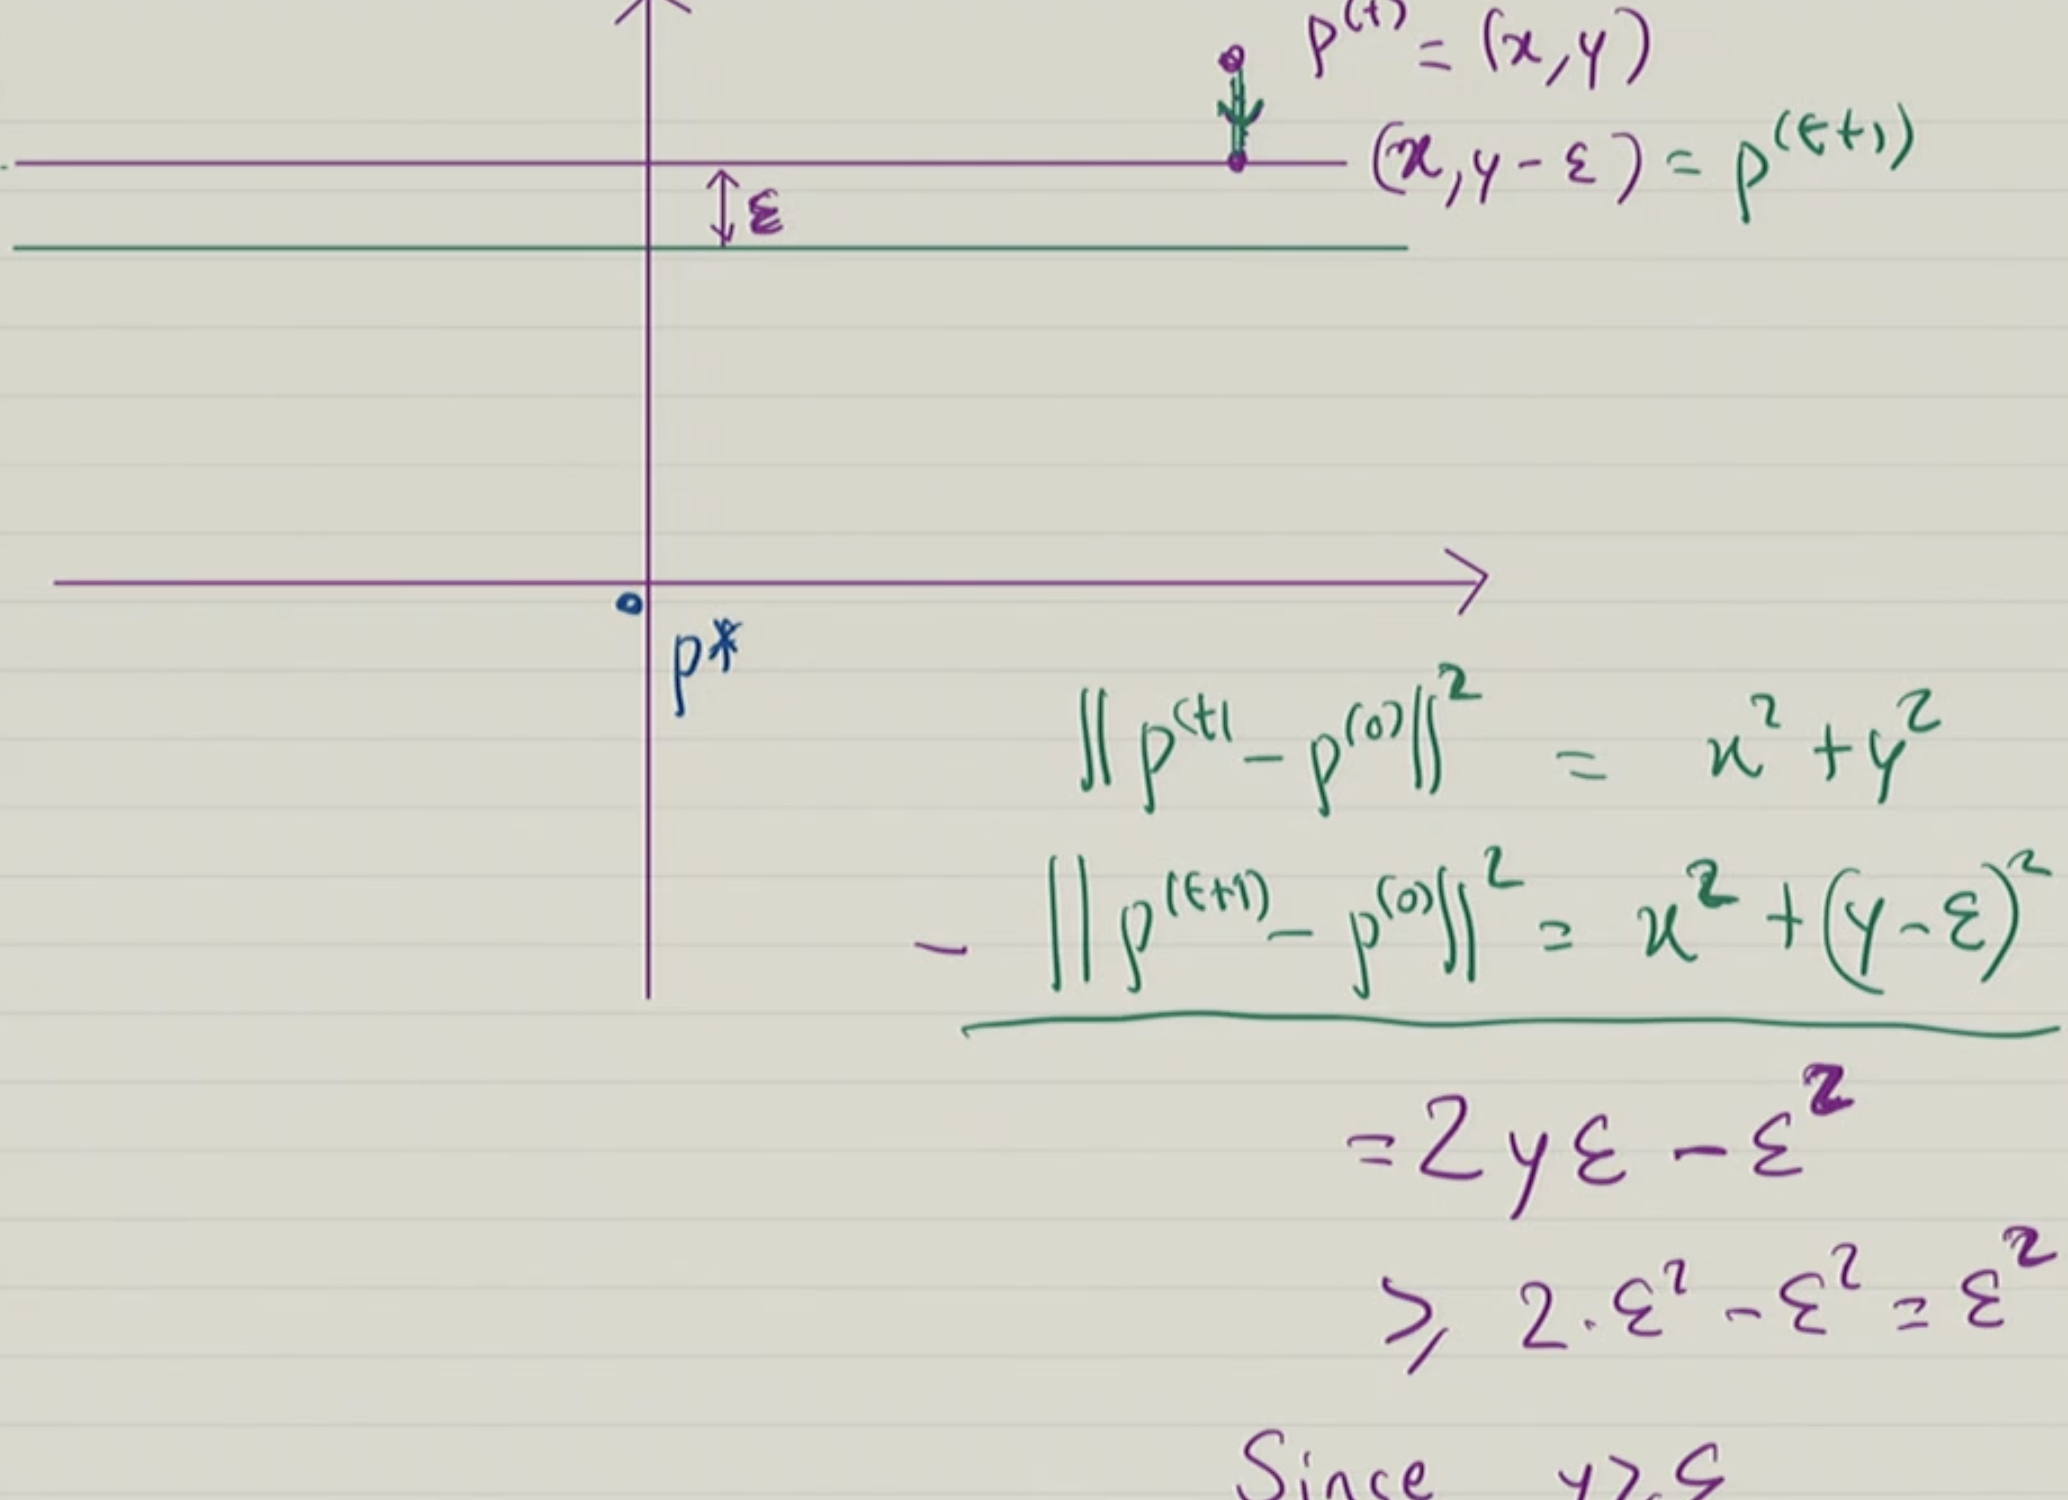 p^(t) = (x, y)
(x, y - ε) = p^(t+1)
ε
p*
||p^(t) - p^(0)||^2 = x^2 + y^2
- ||p^(t+1) - p^(0)||^2 = x^2 + (y - ε)^2
= 2yε - ε^2
≥ 2·ε^2 - ε^2 = ε^2
Since y ≥ ε